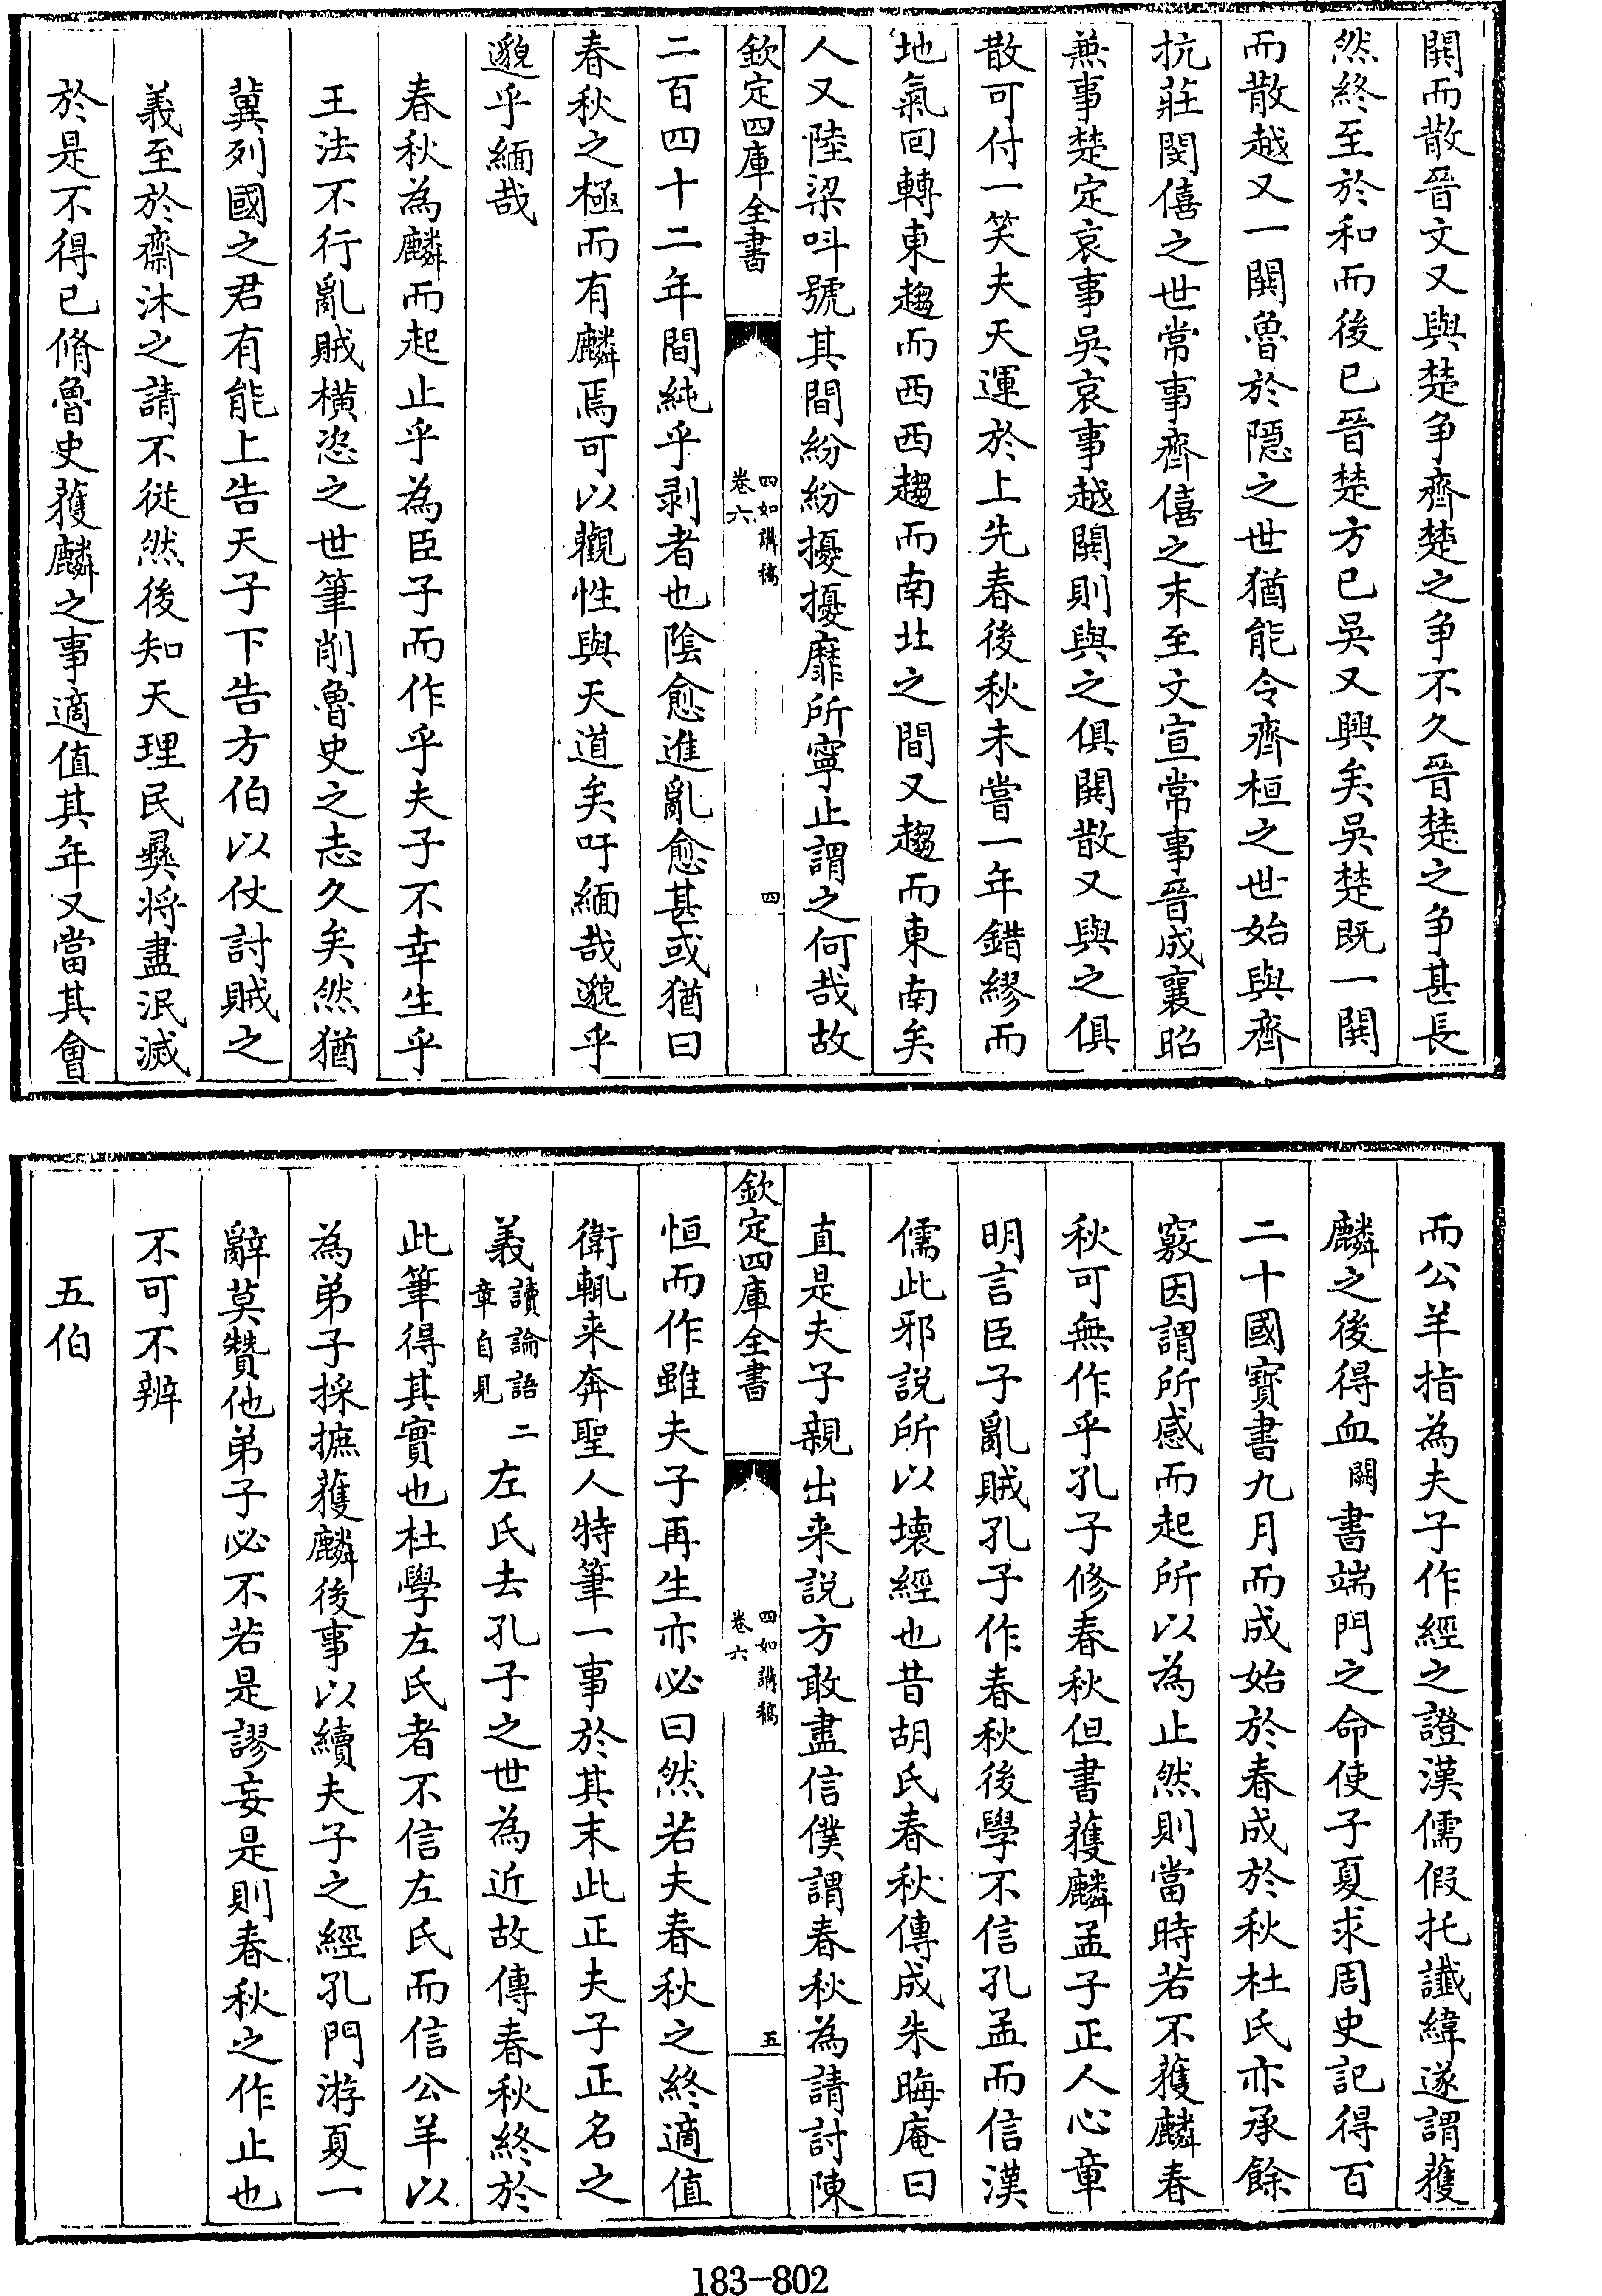 闗而散晉文又與楚争齊楚之争不久晉楚之争甚長
然終至於和而後已晉楚方已吳又興矣吳楚既一闗
而散越又一闗魯於隱之世猶能令齊桓之世始與齊
抗莊閔僖之世常事齊僖之末至文宣常事晉成襄昭
兼事楚定哀事吳哀事越闗則與之俱闗散又與之俱
散可付一笑夫天運於上先春後秋未嘗一年錯繆而
地氣回轉東趨而西西趨而南北之間又趨而東南矣
人又陸梁呌號其間紛紛擾擾靡所寧止謂之何哉故
欽定四庫全書
四如講稿
卷六
四
二百四十二年間純乎剥者也陰愈進亂愈甚或猶曰
春秋之極而有麟焉可以觀性與天道矣吁緬哉邈乎
邈乎緬哉
春秋為麟而起止乎為臣子而作乎夫子不幸生乎
王法不行亂賊横恣之世筆削魯史之志久矣然猶
冀列國之君有能上告天子下告方伯以仗討賊之
義至於齋沐之請不從然後知天理民彛将盡泯滅
於是不得已脩魯史獲麟之事適值其年又當其會
而公羊指為夫子作經之證漢儒假托讖緯遂謂獲
麟之後得血闕書端門之命使子夏求周史記得百
二十國寶書九月而成始於春成於秋杜氏亦承餘
竅因謂所感而起所以為止然則當時若不獲麟春
秋可無作乎孔子修春秋但書獲麟孟子正人心章
明言臣子亂賊孔子作春秋後學不信孔孟而信漢
儒此邪説所以壊經也昔胡氏春秋傳成朱晦庵曰
直是夫子親出来説方敢盡信僕謂春秋為請討陳
欽定四庫全書
四如講稿
卷六
五
恒而作雖夫子再生亦必曰然若夫春秋之終適值
衛輒来奔聖人特筆一事於其末此正夫子正名之
義讀論語二章自見左氏去孔子之世為近故傳春秋終於
此筆得其實也杜學左氏者不信左氏而信公羊以
為弟子採摭獲麟後事以續夫子之經孔門游夏一
辭莫贊他弟子必不若是謬妄是則春秋之作止也
不可不辨
五伯
183-802